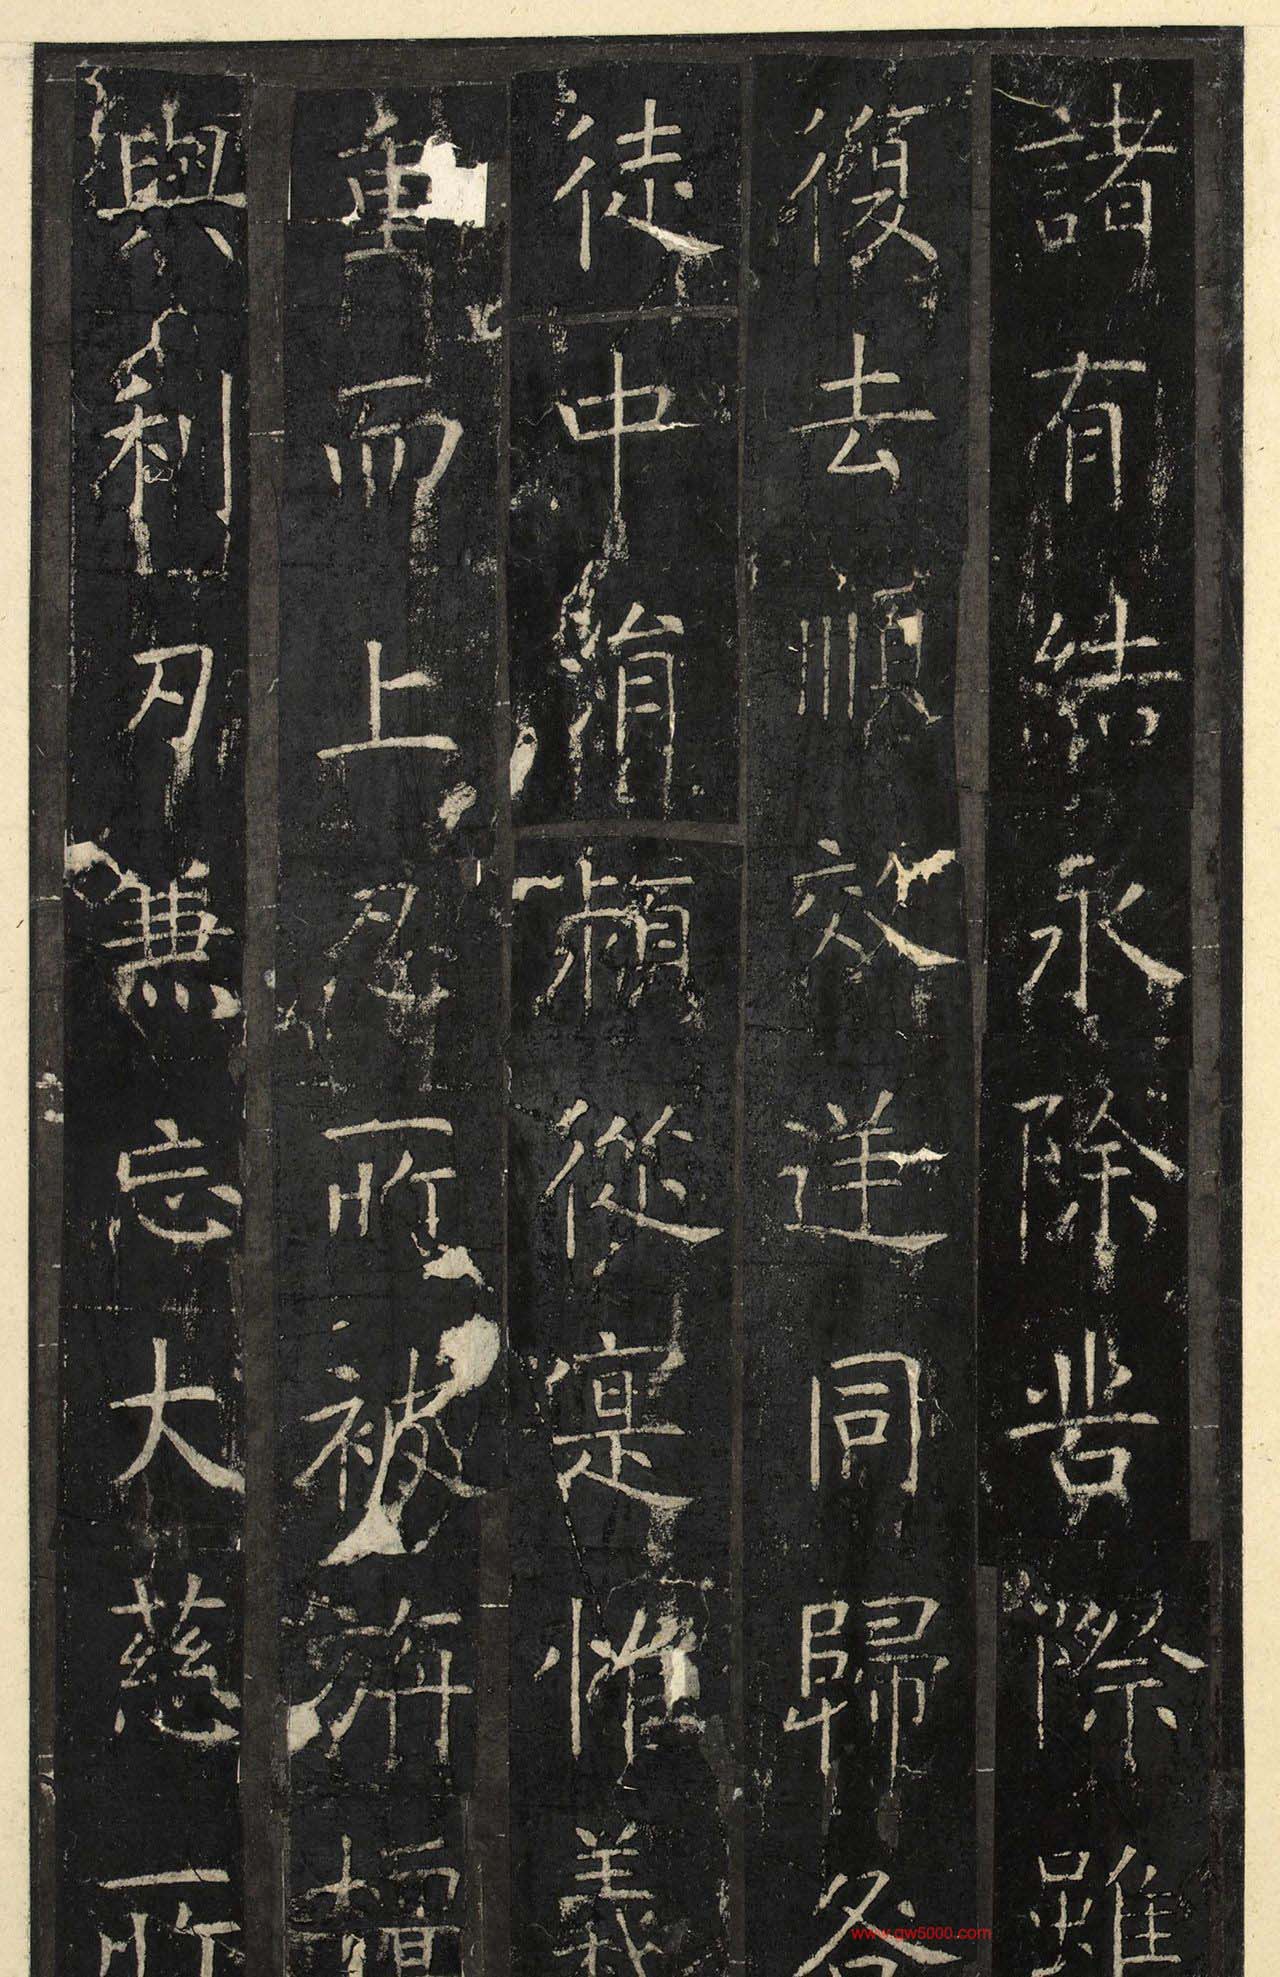 諸有結永除苦際雖
復去順效逆同歸各
徒中涓頻從寔惟義
重而上忍所被旃檀
與利刃兼忘大慈所
www.gw5000.com